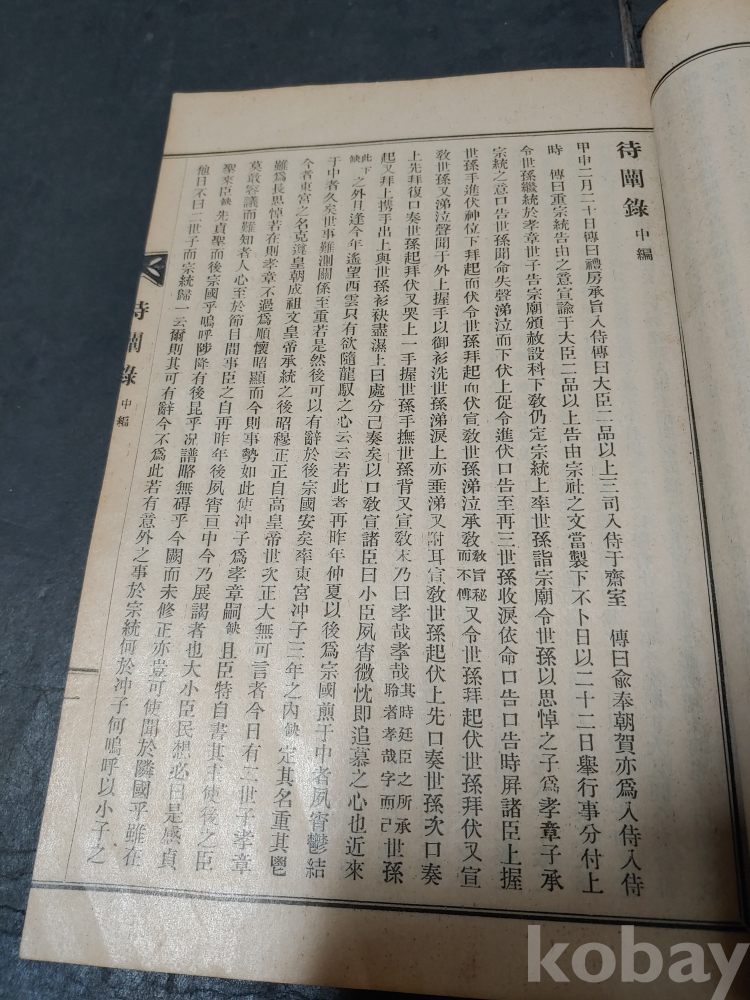 待闡錄 中編
甲申二月二十日傳曰禮房承旨入侍傳曰大臣二品以上三司入侍于齋室 傳曰兪奉朝賀亦爲入侍入侍
時 傳曰重宗統告由之意宣諭于大臣二品以上告由宗社之文當製下不卜日以二十二日舉行事分付上
令世孫繼統於孝章世子告宗廟頒赦設科下敎仍定宗統上率世孫詣宗廟令世孫以思悼之子爲孝章子承
宗統之意口告世孫聞命失聲涕泣而下伏上促令進伏口告至再三世孫收淚依命口告口告時屛諸臣上握
世孫手進伏神位下拜起而伏令世孫拜起而伏宣敎世孫涕泣承敎敎旨秘而不傳又令世孫拜起伏世孫拜伏又宣
敎世孫又涕泣聲聞于外上握手以御衫洗世孫涕淚上亦垂涕又附耳宣敎世孫起伏上先口奏世孫次口奏
上先拜復口奏世孫起拜伏又哭上一手握世孫手撫世孫背又宣敎末乃曰孝哉孝哉其時廷臣之所承聆者孝哉字而己世孫
起又拜上携手出上與世孫衫袂盡濕上曰處分己奏矣以口敎宣諸臣曰小臣夙宵微忱即追慕之心也近來
此下缺之外且逢今年遙望西雲只有欲隨龍馭之心云云若此者再昨年仲夏以後爲宗國煎于中者夙宵鬱結
于中者久矣世事難測關係至重若是然後可以有辭於後宗國安矣率東宮冲子三年之內缺定其名重其鬯
今者東宮之名克遵皇朝成祖文皇帝承統之後昭穆正正自高皇帝世次正大無可言者今日有二世子孝章
雖爲長思悼若在則孝章不過爲順懷昭顯而今則事勢如此使冲子爲孝章嗣缺且臣特自書其主使後之臣
莫敢容議而難知者人心至於節目間事臣之自再昨年後夙宵亘中今乃展謁者也大小臣民想必曰是感貞
聖來臣缺先貞聖而後宗國乎嗚呼陟降有後昆乎况譜略無碍乎今闕而未修正亦豈可使聞於隣國乎雖在
他日不曰二世子而宗統歸一云爾則其可有辭今不爲此若有意外之事於宗統何於冲子何嗚呼以小子之
待闡錄 中編
kobay